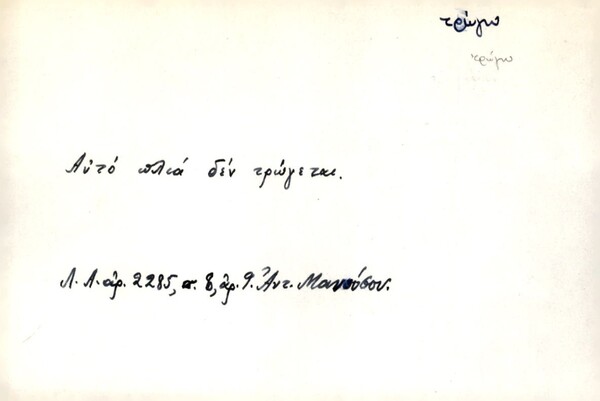 τρώγω
τρώγω
Αὐτό πλιά δέν τρώγεται.
Λ.Λ. ἀρ. 2285, σ. 8, ἀρ. 9. Ἀντ. Μανούσου.